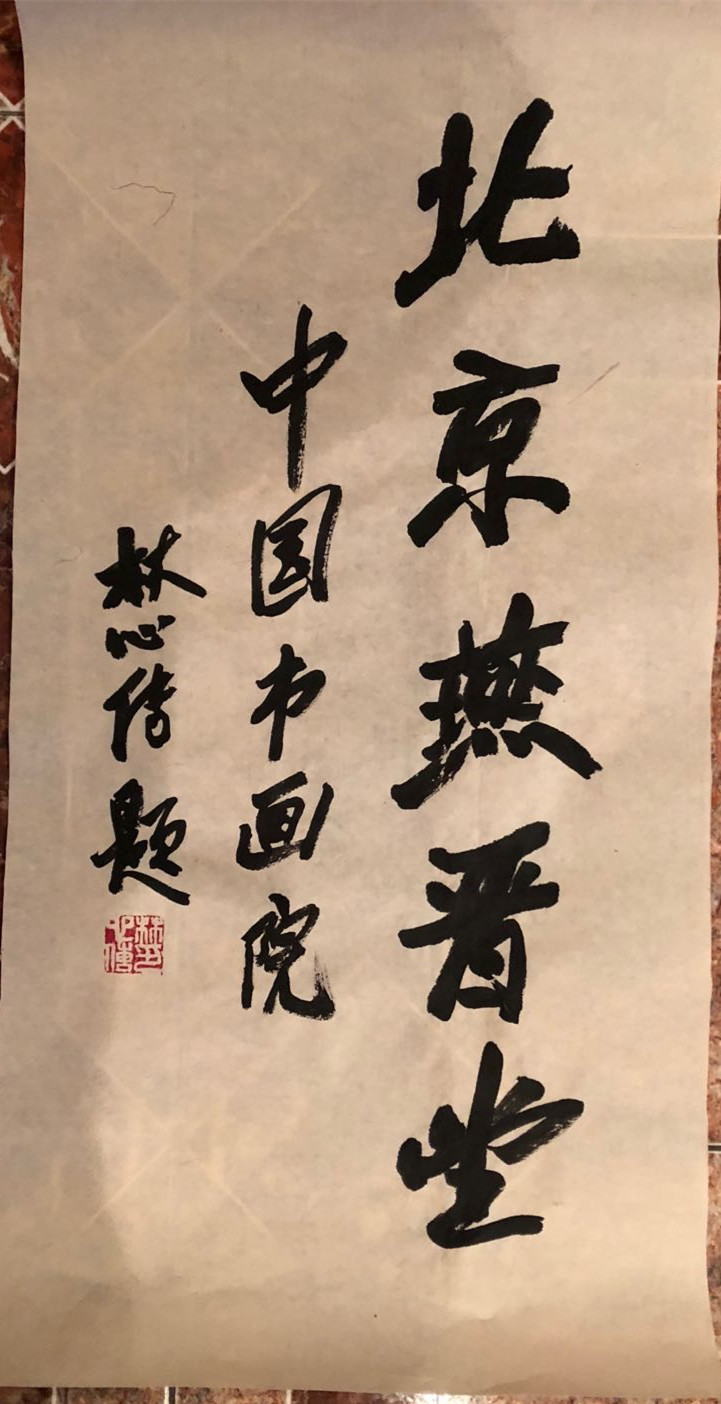 北京燕晋堂
中国书画院
林心传题